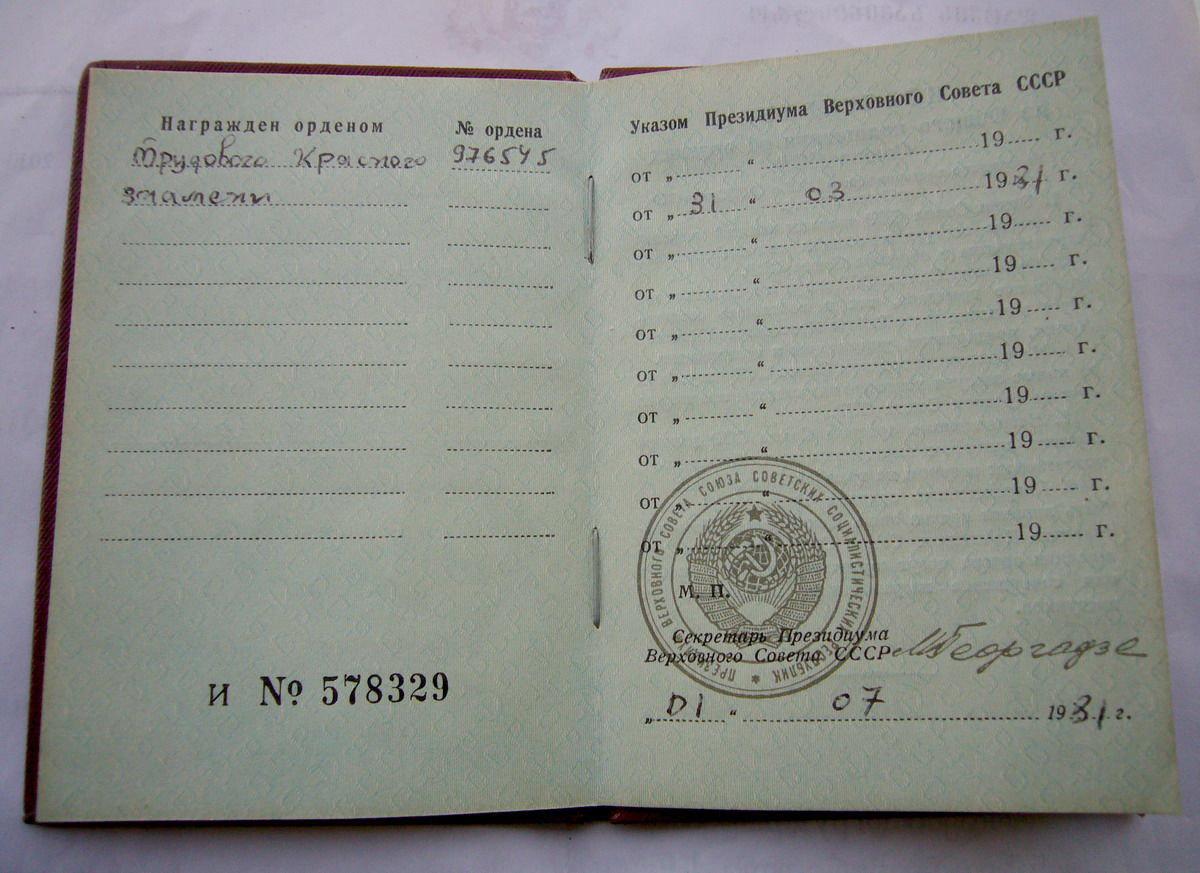 Награжден орденом
№ ордена
Трудового Красного
976545
знамени
И № 578329
Указом Президиума Верховного Совета СССР
от „ “ 19 г.
от „ 31 “ 03 1981 г.
от „ “ 19 г.
от „ “ 19 г.
от „ “ 19 г.
от „ “ 19 г.
от „ “ 19 г.
от „ “ 19 г.
от „ “ 19 г.
от „ “ 19 г.
ПРЕЗИДИУМ ВЕРХОВНОГО СОВЕТА СОЮЗА СОВЕТСКИХ СОЦИАЛИСТИЧЕСКИХ РЕСПУБЛИК
М. П.
Секретарь Президиума
Верховного Совета СССР
МГеоргадзе
„ 01 “ 07 1981 г.